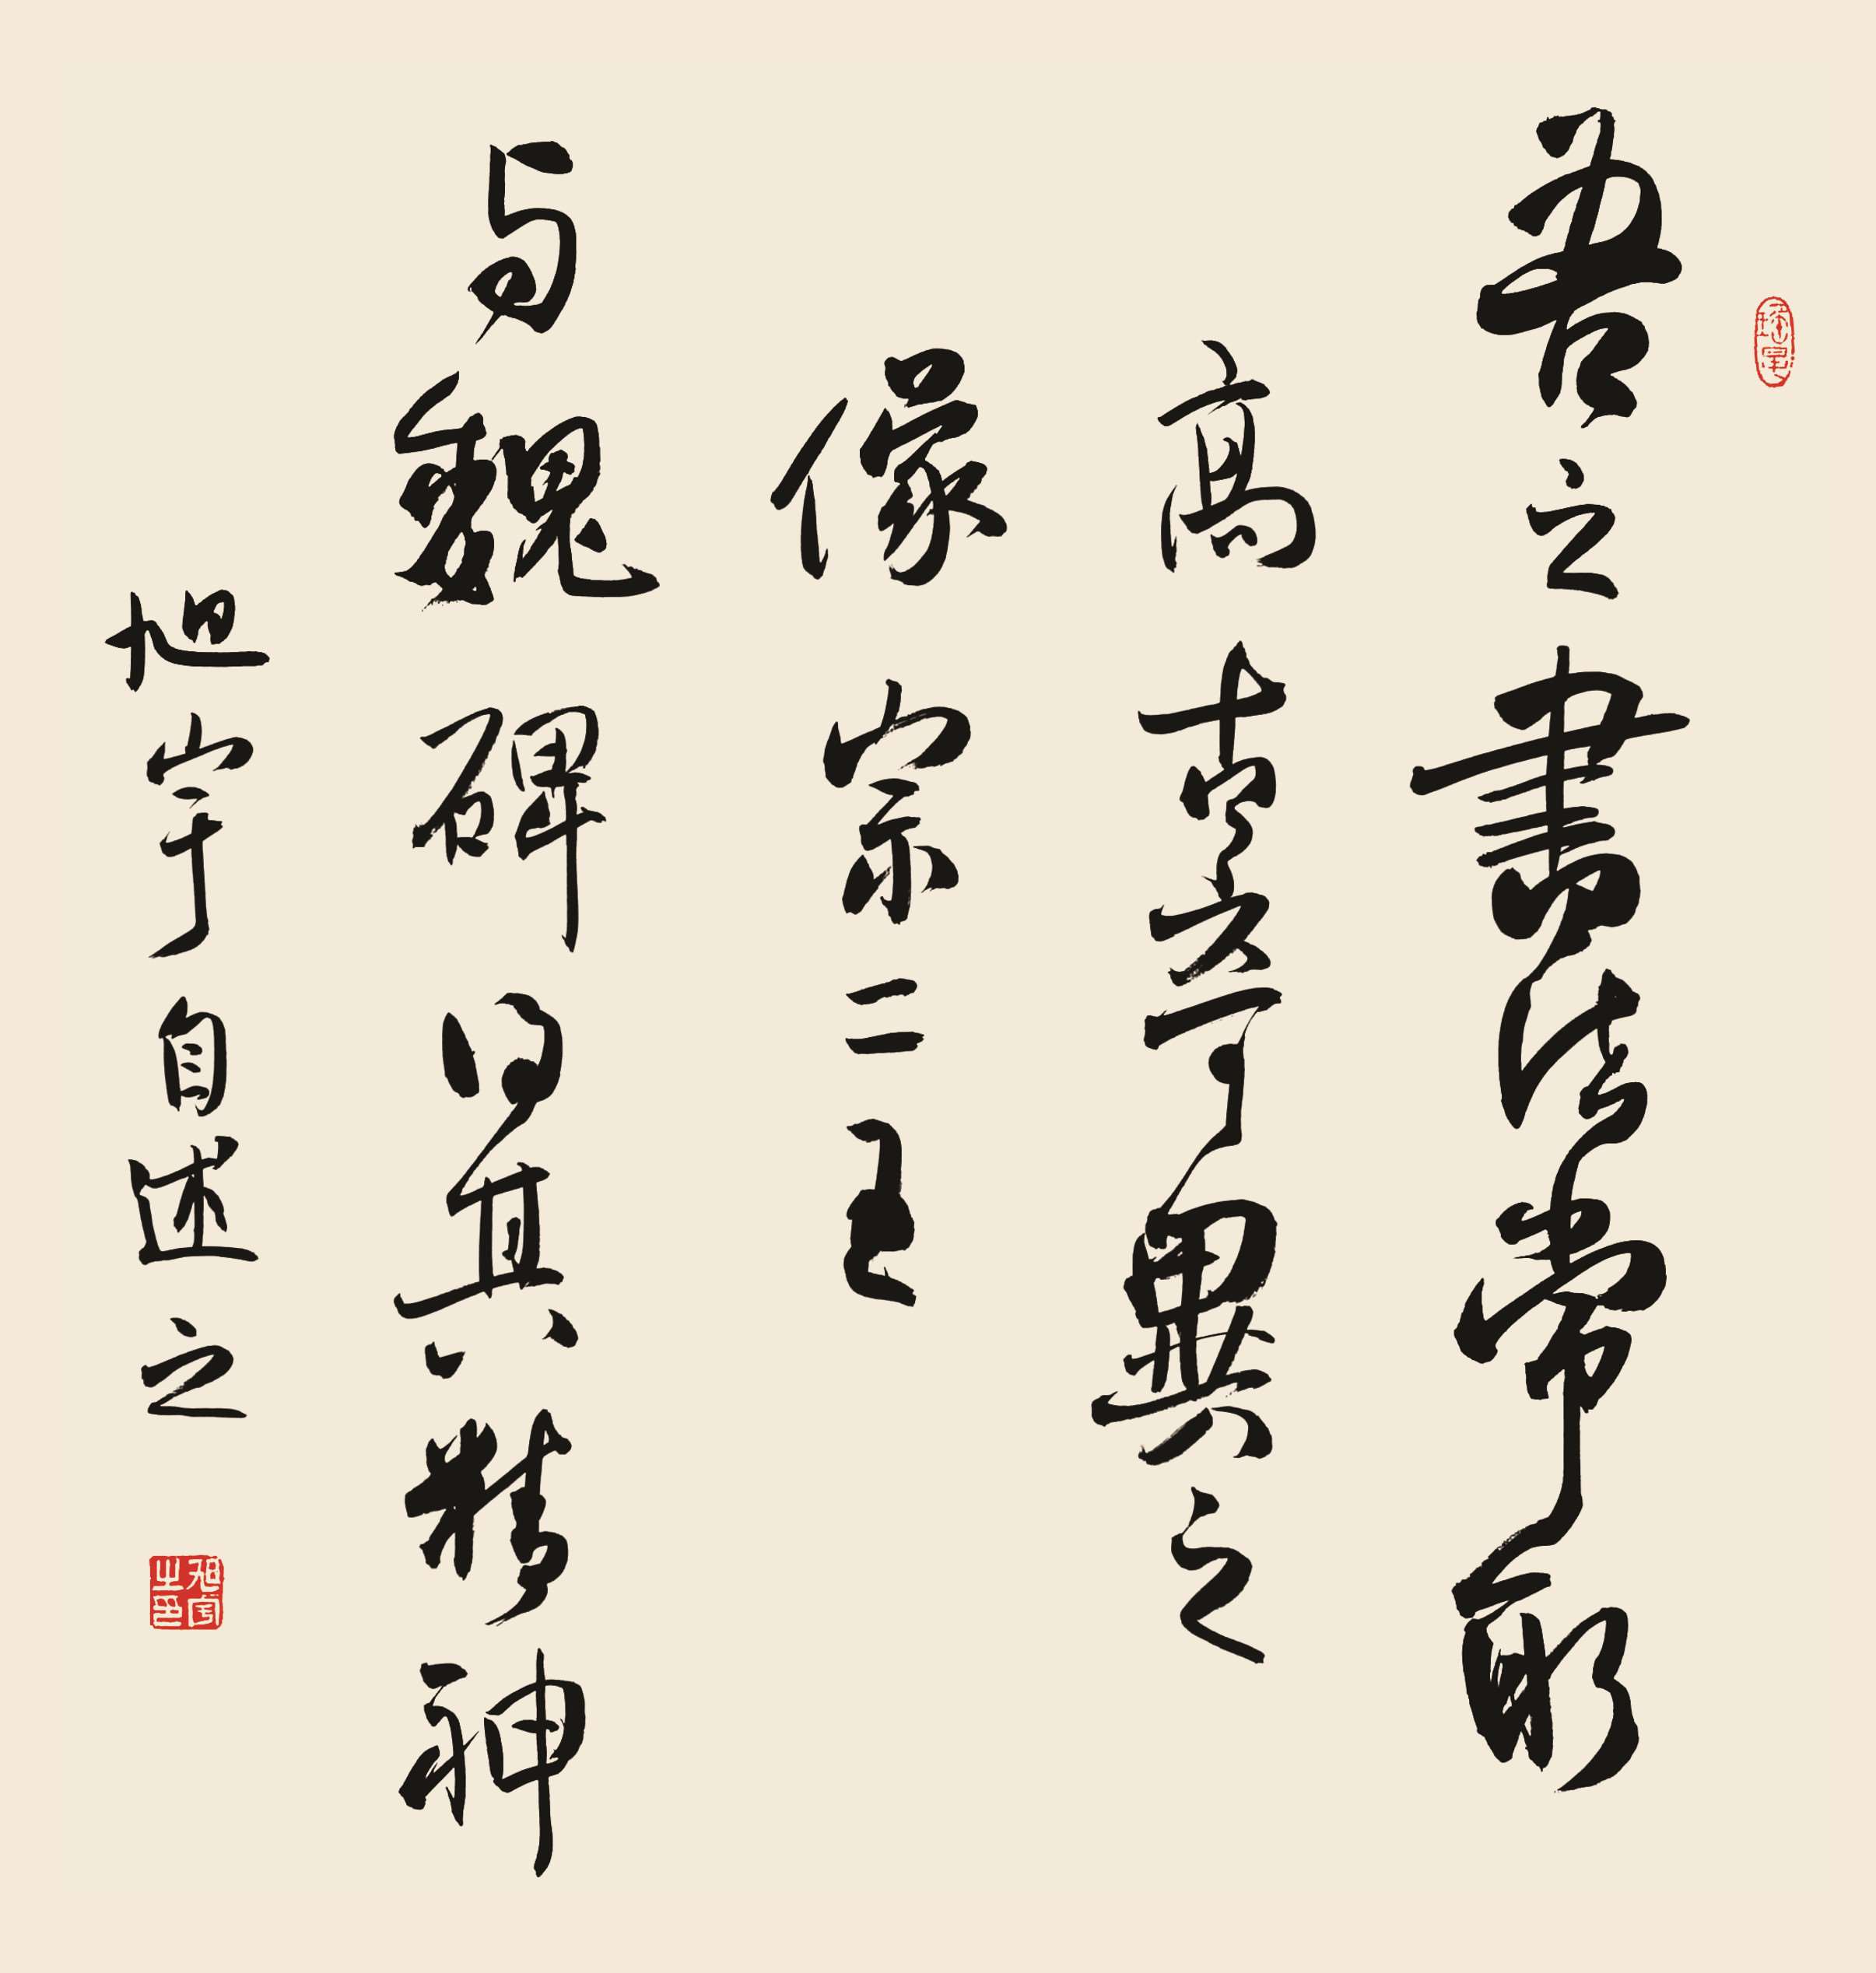 吾之書法常
高古奇異之
像宗二王
与魏碑其精神
旭宇自述之
旭宇之印